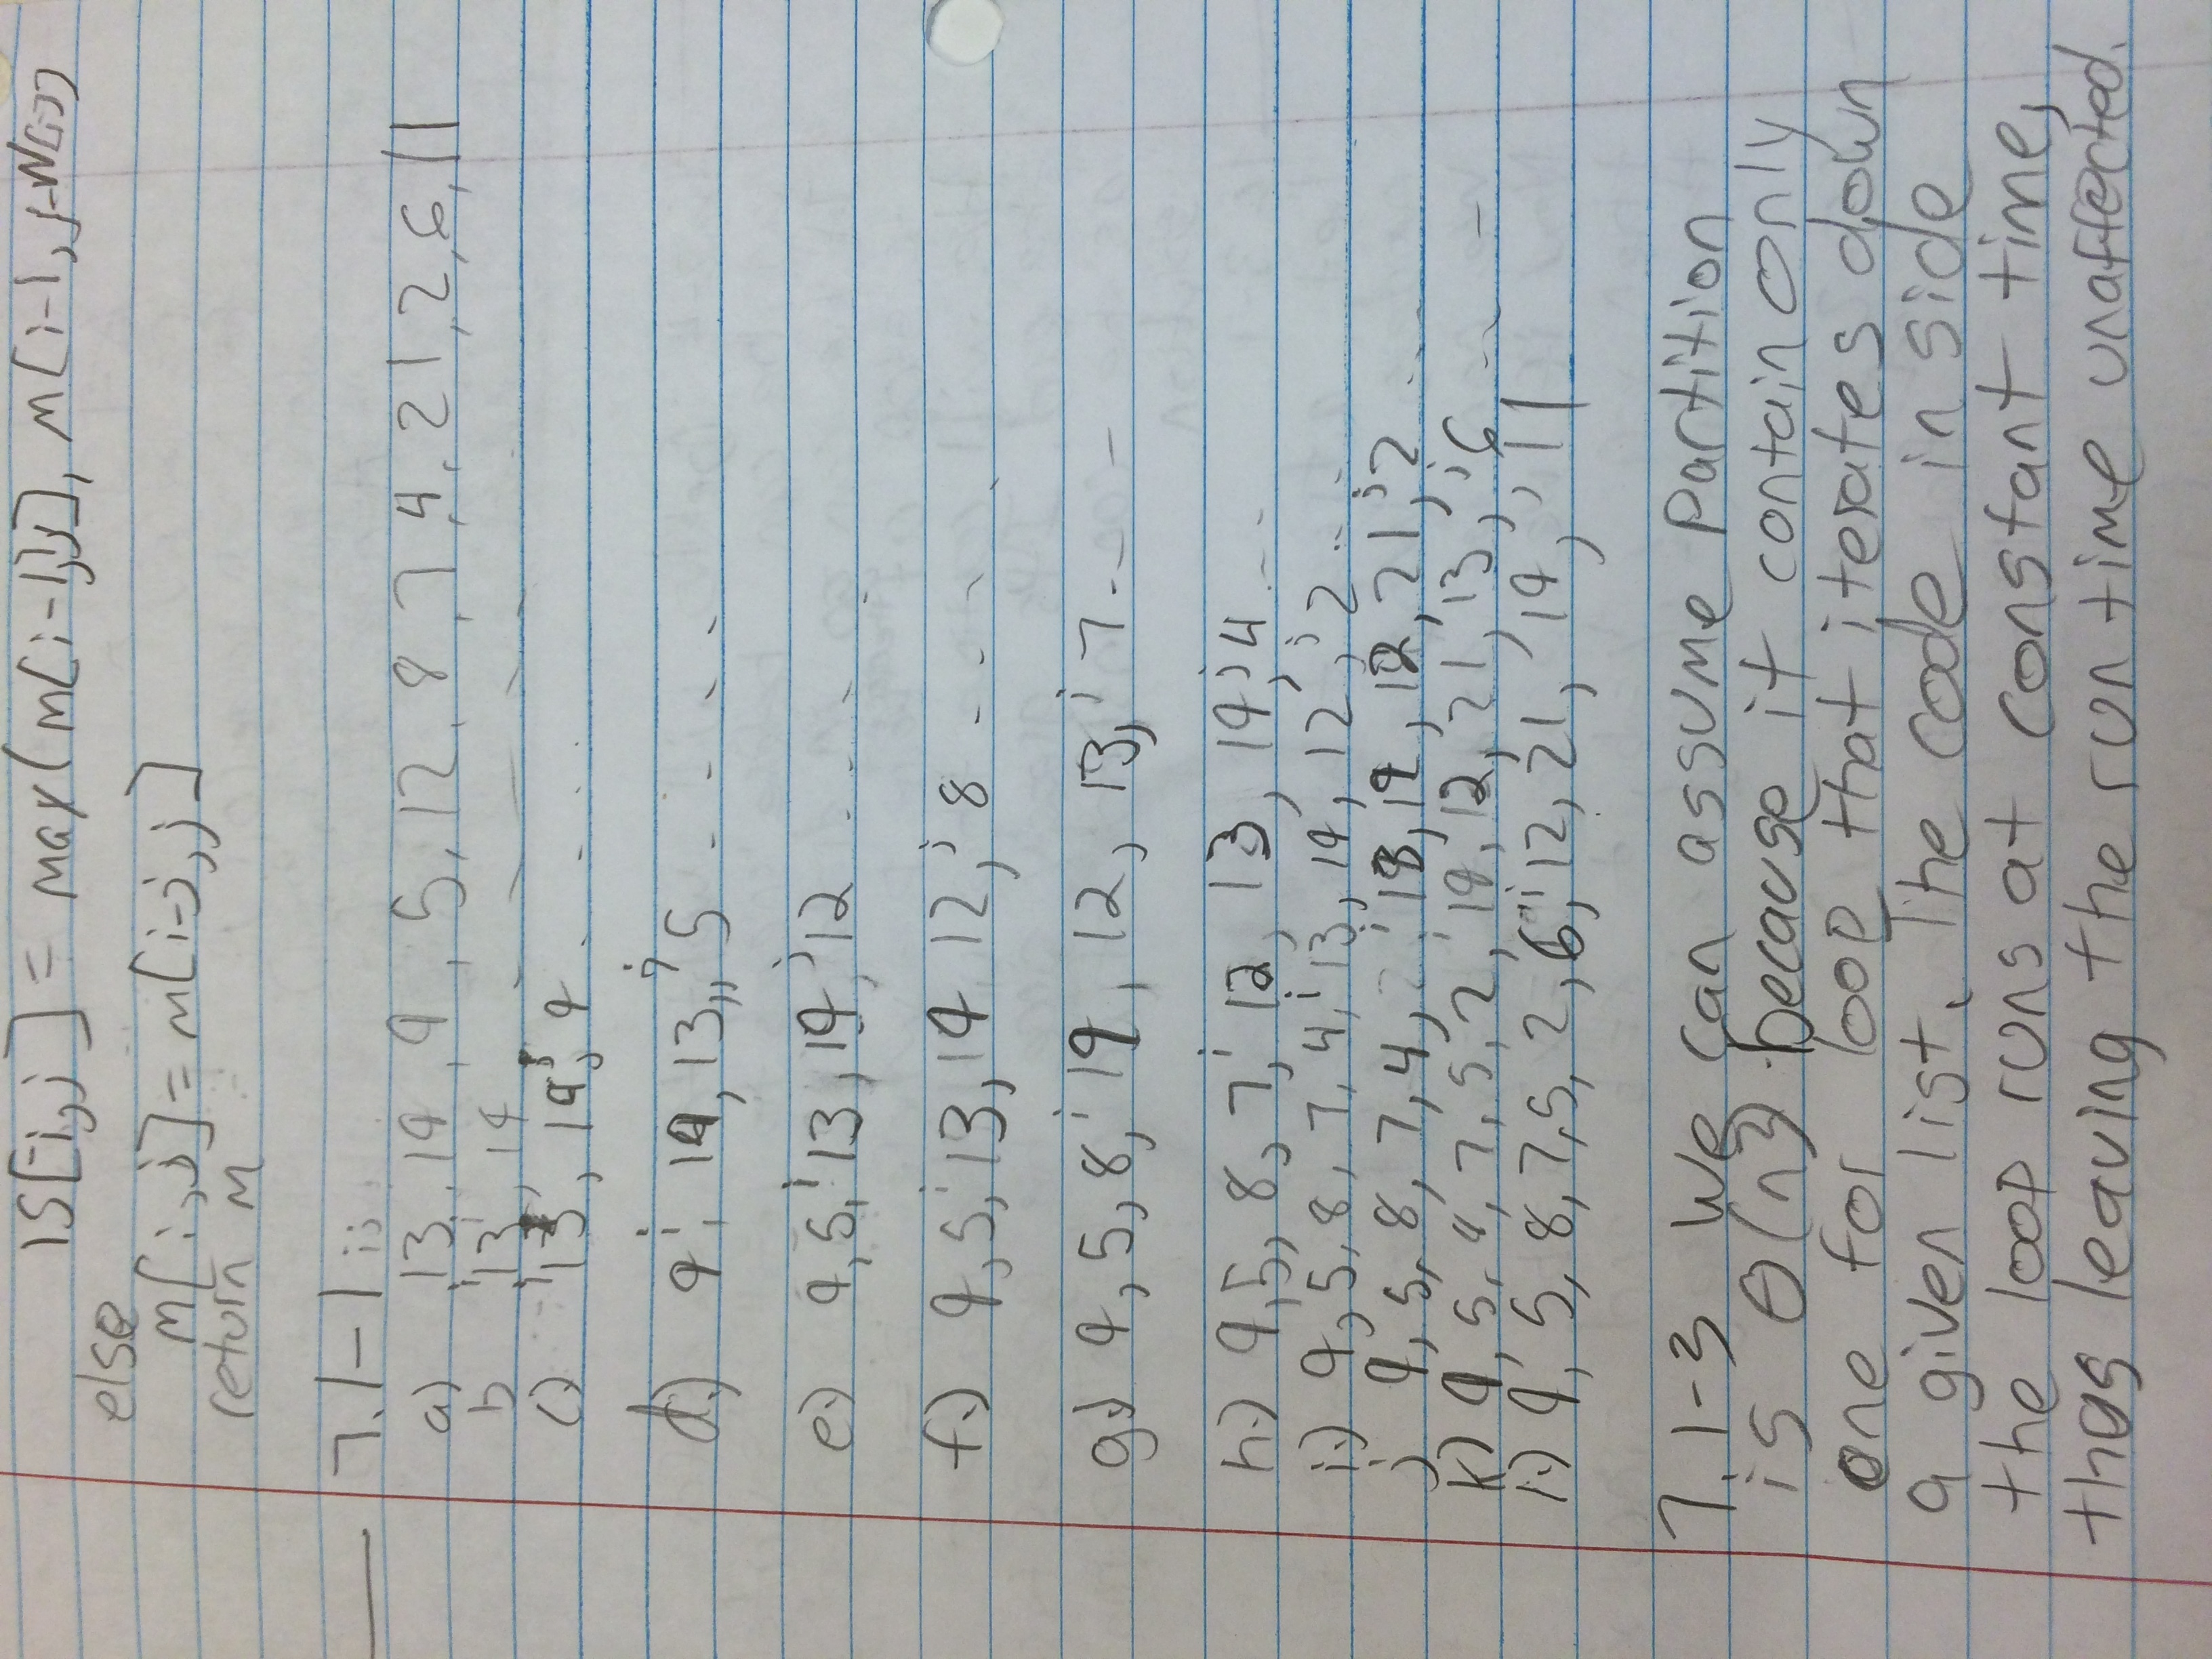 is[i,j] = max(m[i-1,j], m[i-1, j-W[i]]
else
m[i,j] = m[i-j, j]
return m
7.1-1
a) 13, 19, 9, 5, 12, 8, 7, 4, 21, 2, 6, 11
b 13, 19 - - - - -
c) 13, 19, 9 . - . .
d.) 9, 19, 13, 5 - - - -
e.) 9, 5, i 13, 19, j 12 - - - -
f.) 9, 5, i 13, 19 12, j 8 - - - -
g.) 9, 5, 8, i 19, 12, 13, j 7 - - -
h.) 9, 5, 8, 7, i 12, 13, 19, j 4 - - -
i.) 9, 5, 8, 7, 4, i 13, 19, 12, j 2 - - -
j 9, 5, 8, 7, 4, i 13, 19, 12, 21, j 2 - - -
k) 9, 5, 8, 7, 5, 2, i 19, 12, 21, 13, j 6 - - -
l.) 9, 5, 8, 7, 5, 2, 6, i 12, 21, 19, j 11
7.1-3 We can assume partition
is Θ(n) because it contain only
one for loop that iterates down
a given list. The code in side
the loop runs at constant time,
thus leaving the run time unaffected.